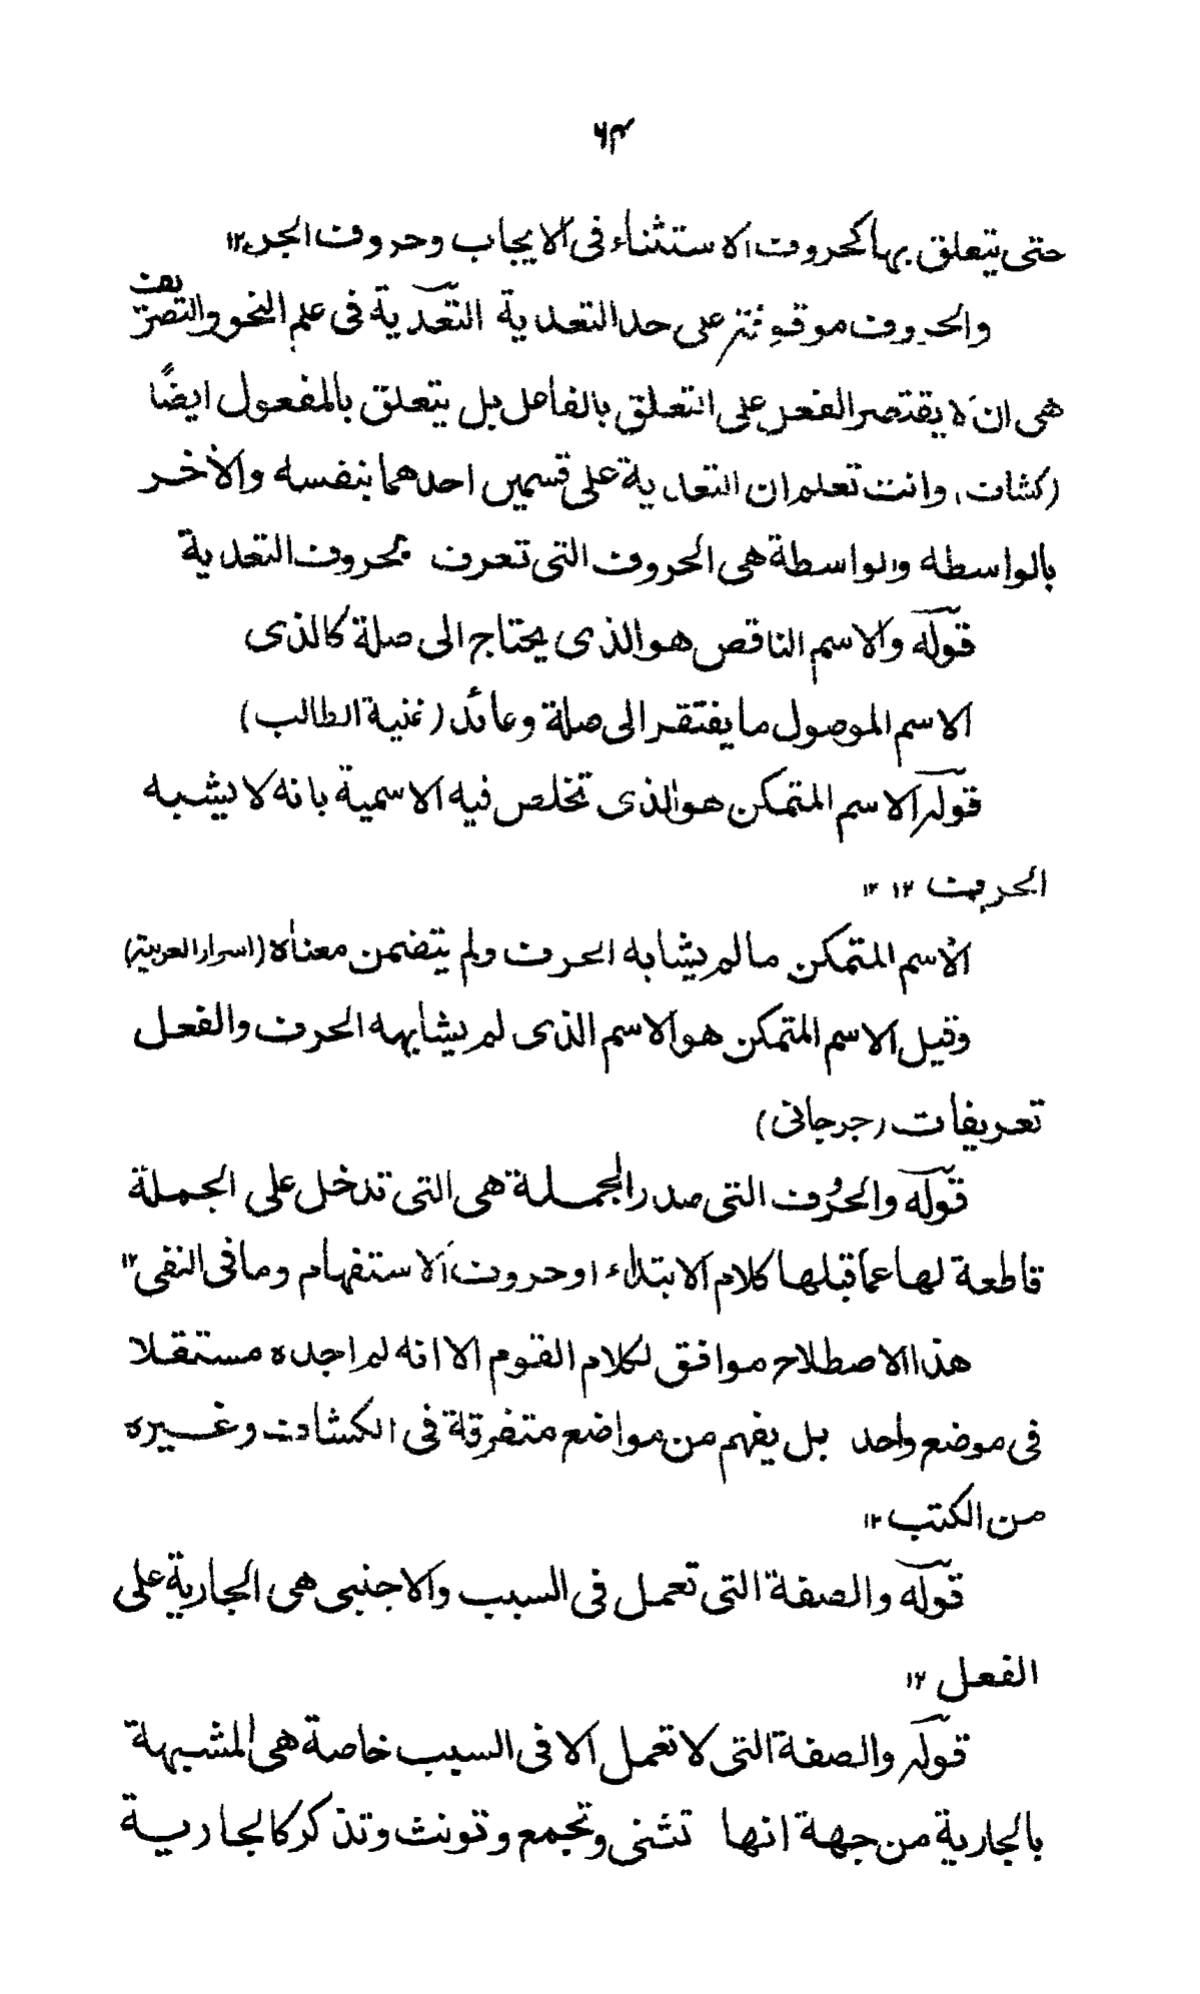 حتى يتعلق بها كحروف الاستثناء فى الايجاب وحروف الجر ۱۲
والحروف موقوفة على حد التعدية التعدية فى علم النحو والتصريف
هى ان لا يقتصر الفعل على التعلق بالفاعل بل يتعلق بالمفعول ايضًا
(كشاف) وانت تعلم ان التعدية على قسمين احدهما بنفسه والأخر
بالواسطه والواسطة هى الحروف التى تعرف بحروف التعدية
قوله والاسم الناقص هو الذى يحتاج الى صلة كالذى
الاسم الموصول ما يفتقر الى صلة وعائد (غنية الطالب)
قوله الاسم المتمكن هو الذى تخلص فيه الاسمية بانه لا يشبه
الحرف ۱۲ ۱۲
الاسم المتمكن ما لم يشابه الحرف ولم يتضمن معناه (اسرار العربية)
وقيل الاسم المتمكن هو الاسم الذى لم يشابهه الحرف والفعل
تعريفات (جرجانى)
قوله والحرف التى صدر الجملة هى التى تدخل على الجملة
قاطعة لها عما قبلها كلام الابتداء او حروف الاستفهام وما فى النفى ۱۲
هذا الاصطلاح موافق لكلام القوم الا انه لم اجده مستقلا
فى موضع واحد بل يفهم من مواضع متفرقة فى الكشاف وغيره
من الكتب ۱۲
قوله والصفة التى تعمل فى السبب والاجنبى هى الجارية على
الفعل ۱۲
قوله والصفة التى لا تعمل الا فى السبب خاصة هى المشبهة
بالجارية من جهة انها تثنى وتجمع وتونث وتذكر كالجارية